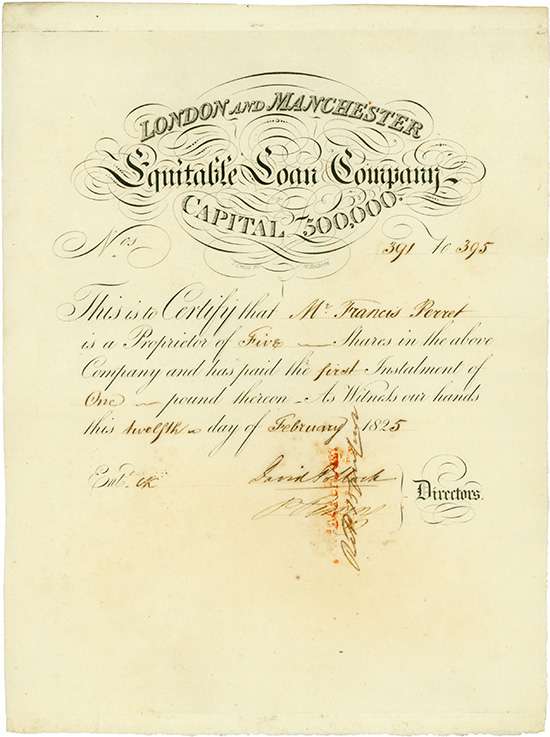 LONDON AND MANCHESTER
Equitable Loan Company
CAPITAL 7,500,000.
Nos. 391 to 395
This is to Certify that Mr. Francis Perret
is a Proprietor of Five Shares in the above
Company and has paid the first Instalment of
One pound thereon As Witness our hands
this twelfth day of February 1825
Entd.
David Pollock
Directors.